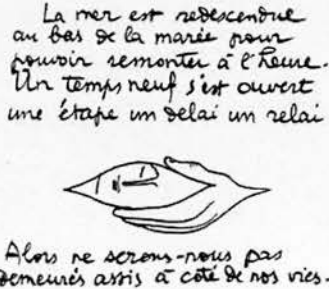 La mer est redescendue
au bas de la marée pour
pouvoir remonter à l'heure.
Un temps neuf s'est ouvert
une étape un delai un relai
Alors ne serons-nous pas
demeurés assis à coté de nos vies.